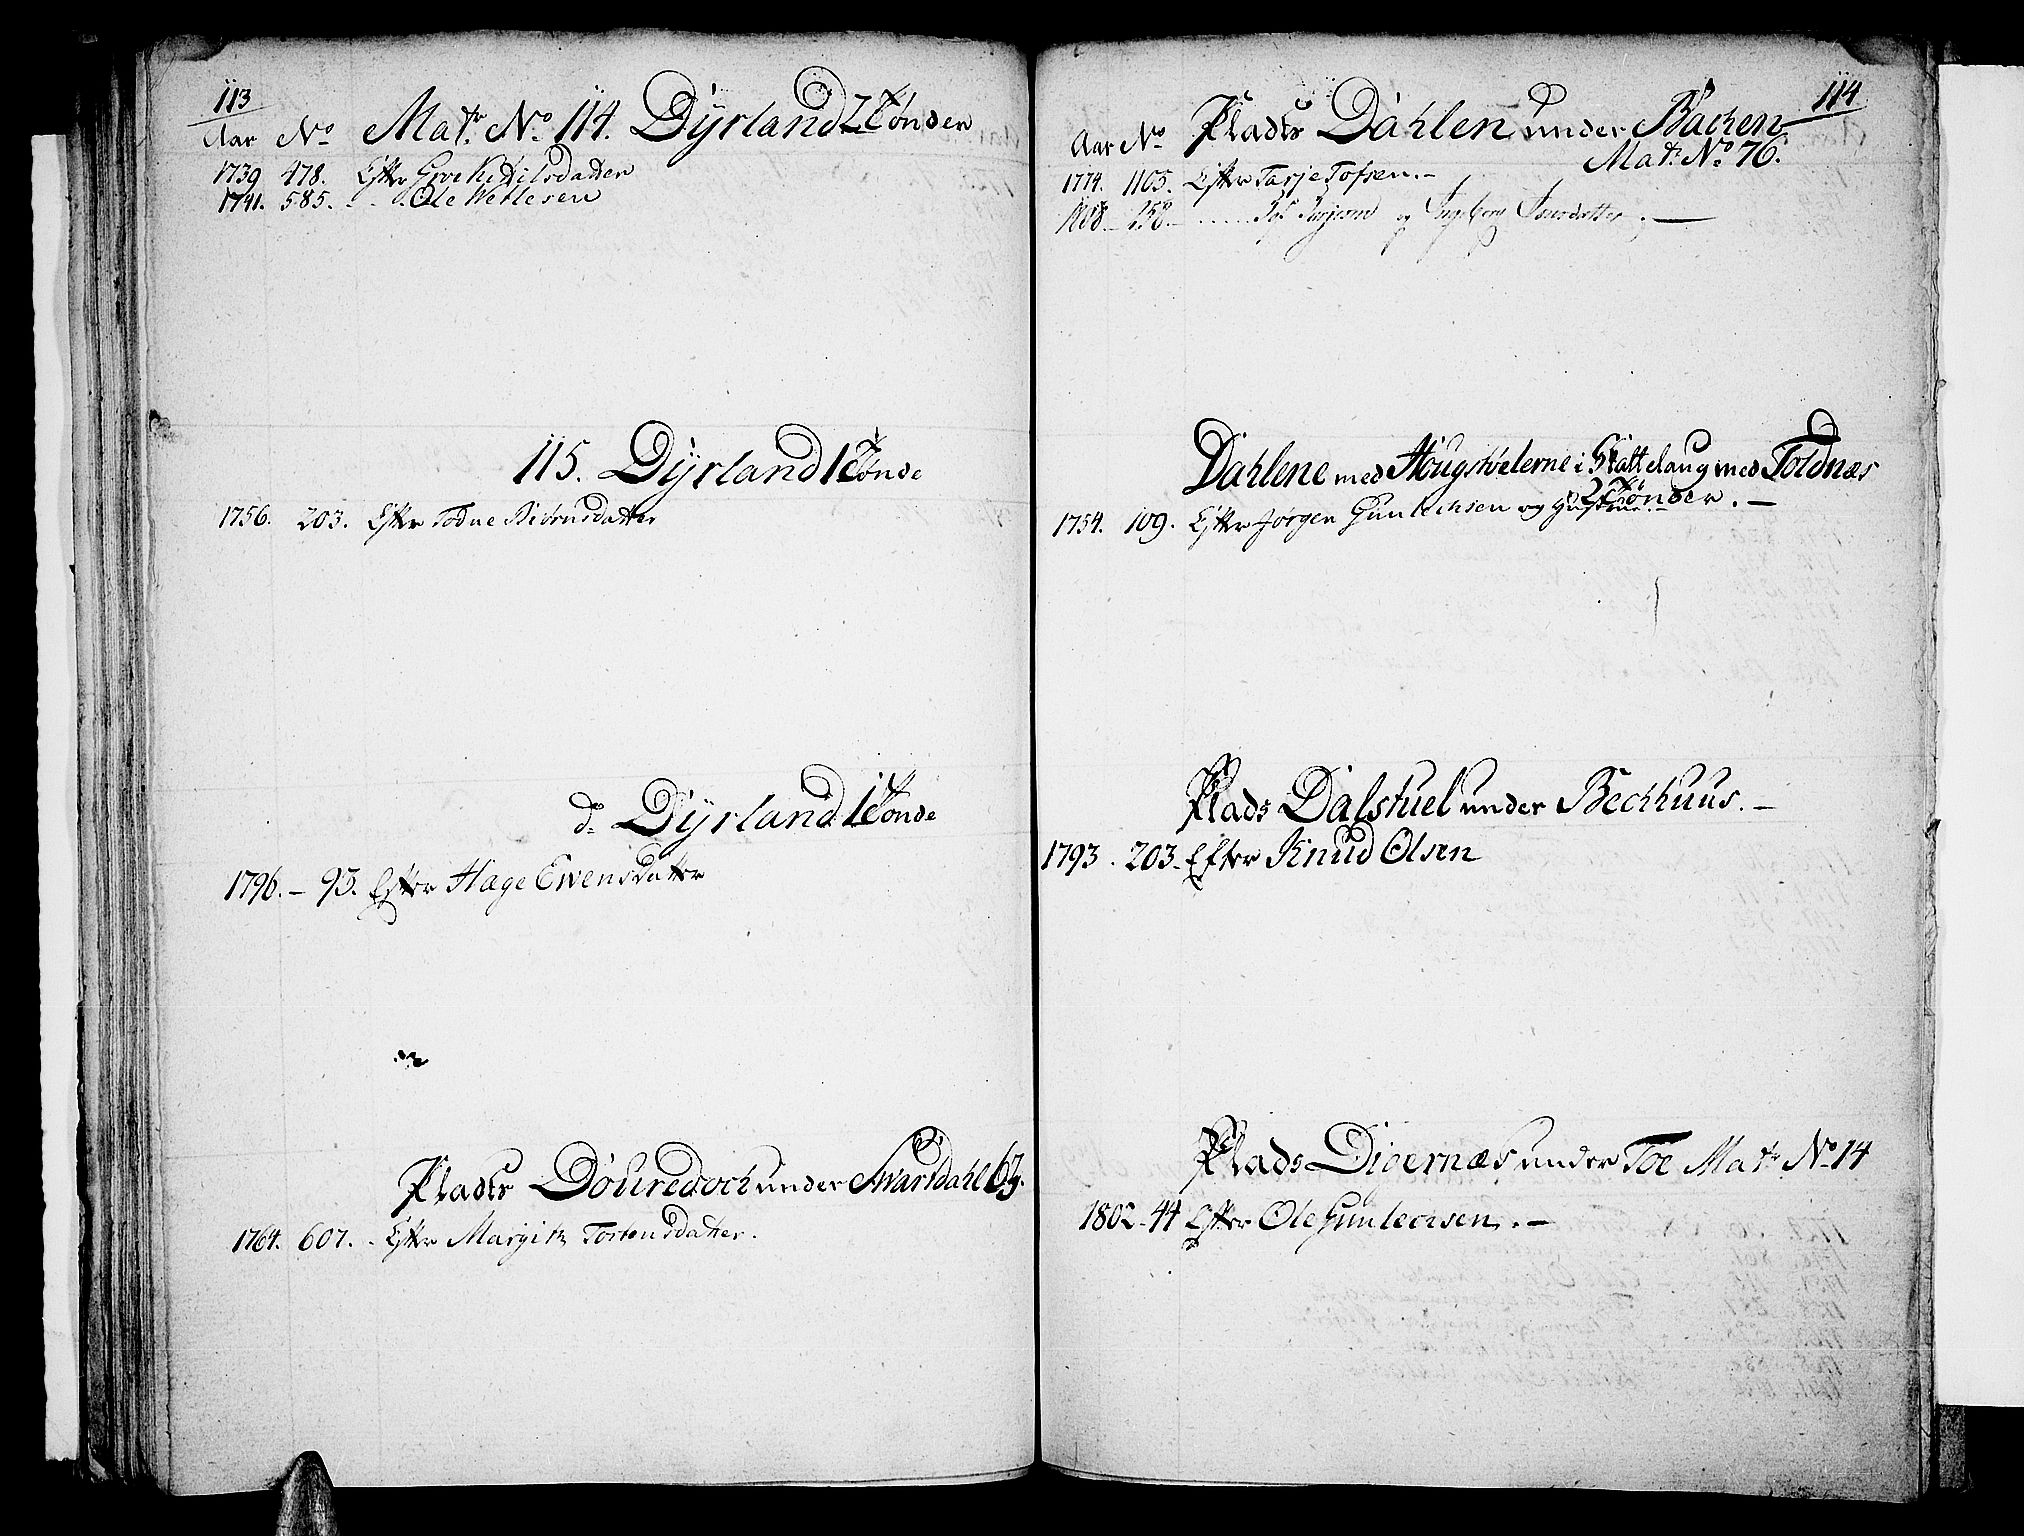 113
Aar No Matr. No. 114. Dÿrland 2 Tønder
1739 478. Efter Groe Kittilsdatter
1741. 585. . . Ole Wetlesen
115. Dÿrland 1 Tønde
1756. 203. Efter Todne Biörnsdatter
do Dÿrland 1 Tønde
1796. – 93. Efter Hæge Ewensdatter
Plads under Swartdahl 63.
1764. 607. . Efter Margith Torstensdatter.
114
Aar No Plads Dahlen under Backen
Matr. No. 76.
1774. 1105. Efter Tarje Tofsen. –
1808. – 258. – ..... og Ingeborg
Dahlene med Hougholerne i Skattelaug med Toldnæs
2 Tønder. –
1754. 109. Efter Jørgen Gunlechsen og Hustrue. –
Plads Dalstuel under Bechhuus. –
1793. 203. Efter Knud Olsen
Plads Digernæs under Toe Matr No 14
1802 – 44 Efter Ole Gunlechsen. –